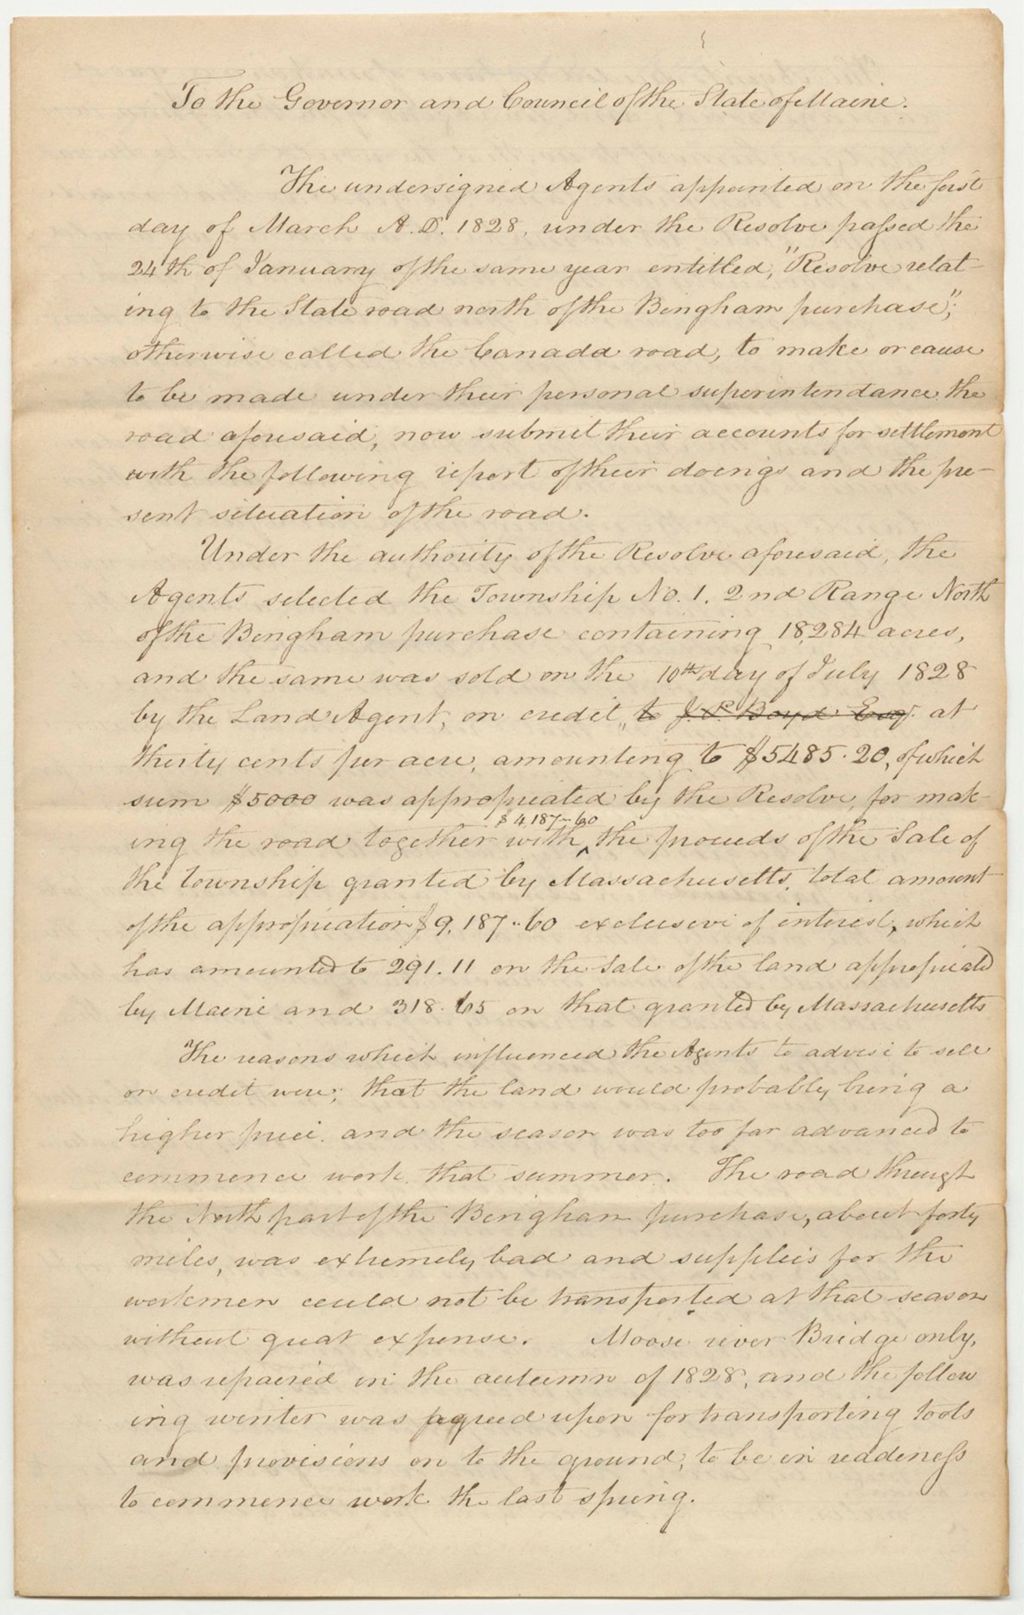 To the Governor and Council of the State of Maine.
The undersigned Agents appointed on the first
day of March A.D. 1828, under the Resolve passed the
24th of January of the same year entitled, "Resolve relat-
ing to the State road north of the Bingham purchase";
otherwise called the Canada road, to make or cause
to be made under their personal superintendance the
road aforesaid, now submit their accounts for settlement
with the following report of their doings and the pre-
sent situation of the road.
Under the authority of the Resolve aforesaid, the
Agents selected the Township No. 1. 2nd Range North
of the Bingham purchase containing 18,284 acres,
and the same was sold on the 10th day of July 1828
by the Land Agent, on credit, to J. P. Boyd Esq. at
thirty cents per acre, amounting to $5485.20, of which
sum $5000 was appropriated by the Resolve, for mak-
$4,187-60
ing the road together with ‸ the proceeds of the Sale of
the township granted by Massachusetts, total amount
of the appropriation $9,187.60 exclusive of interest, which
has amounted to 291.11 on the sale of the land appropriated
by Maine and 318.65 on that granted by Massachusetts
The reasons which influenced the Agents to advise to sell
on credit were; that the land would probably bring a
higher price and the season was too far advanced to
commence work that summer. The road through
the North part of the Bingham purchase, about forty
miles, was extremely bad and supplies for the
workmen could not be transported at that season
without great expense. Moose river Bridge only,
was repaired in the autumn of 1828, and the follow
ing winter was agreed upon for transporting tools
and provisions on to the ground, to be in readeness
to commence work the last spring.